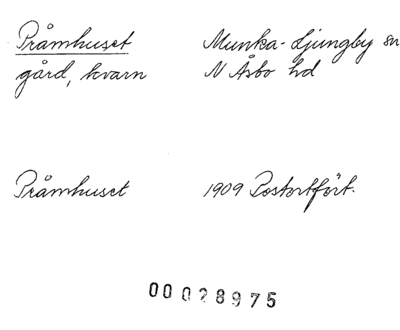 Pråmhuset Munka-Ljungby sn
gård, kvarn N Åsbo hd
Pråmhuset 1909 Postortfört.
00028975